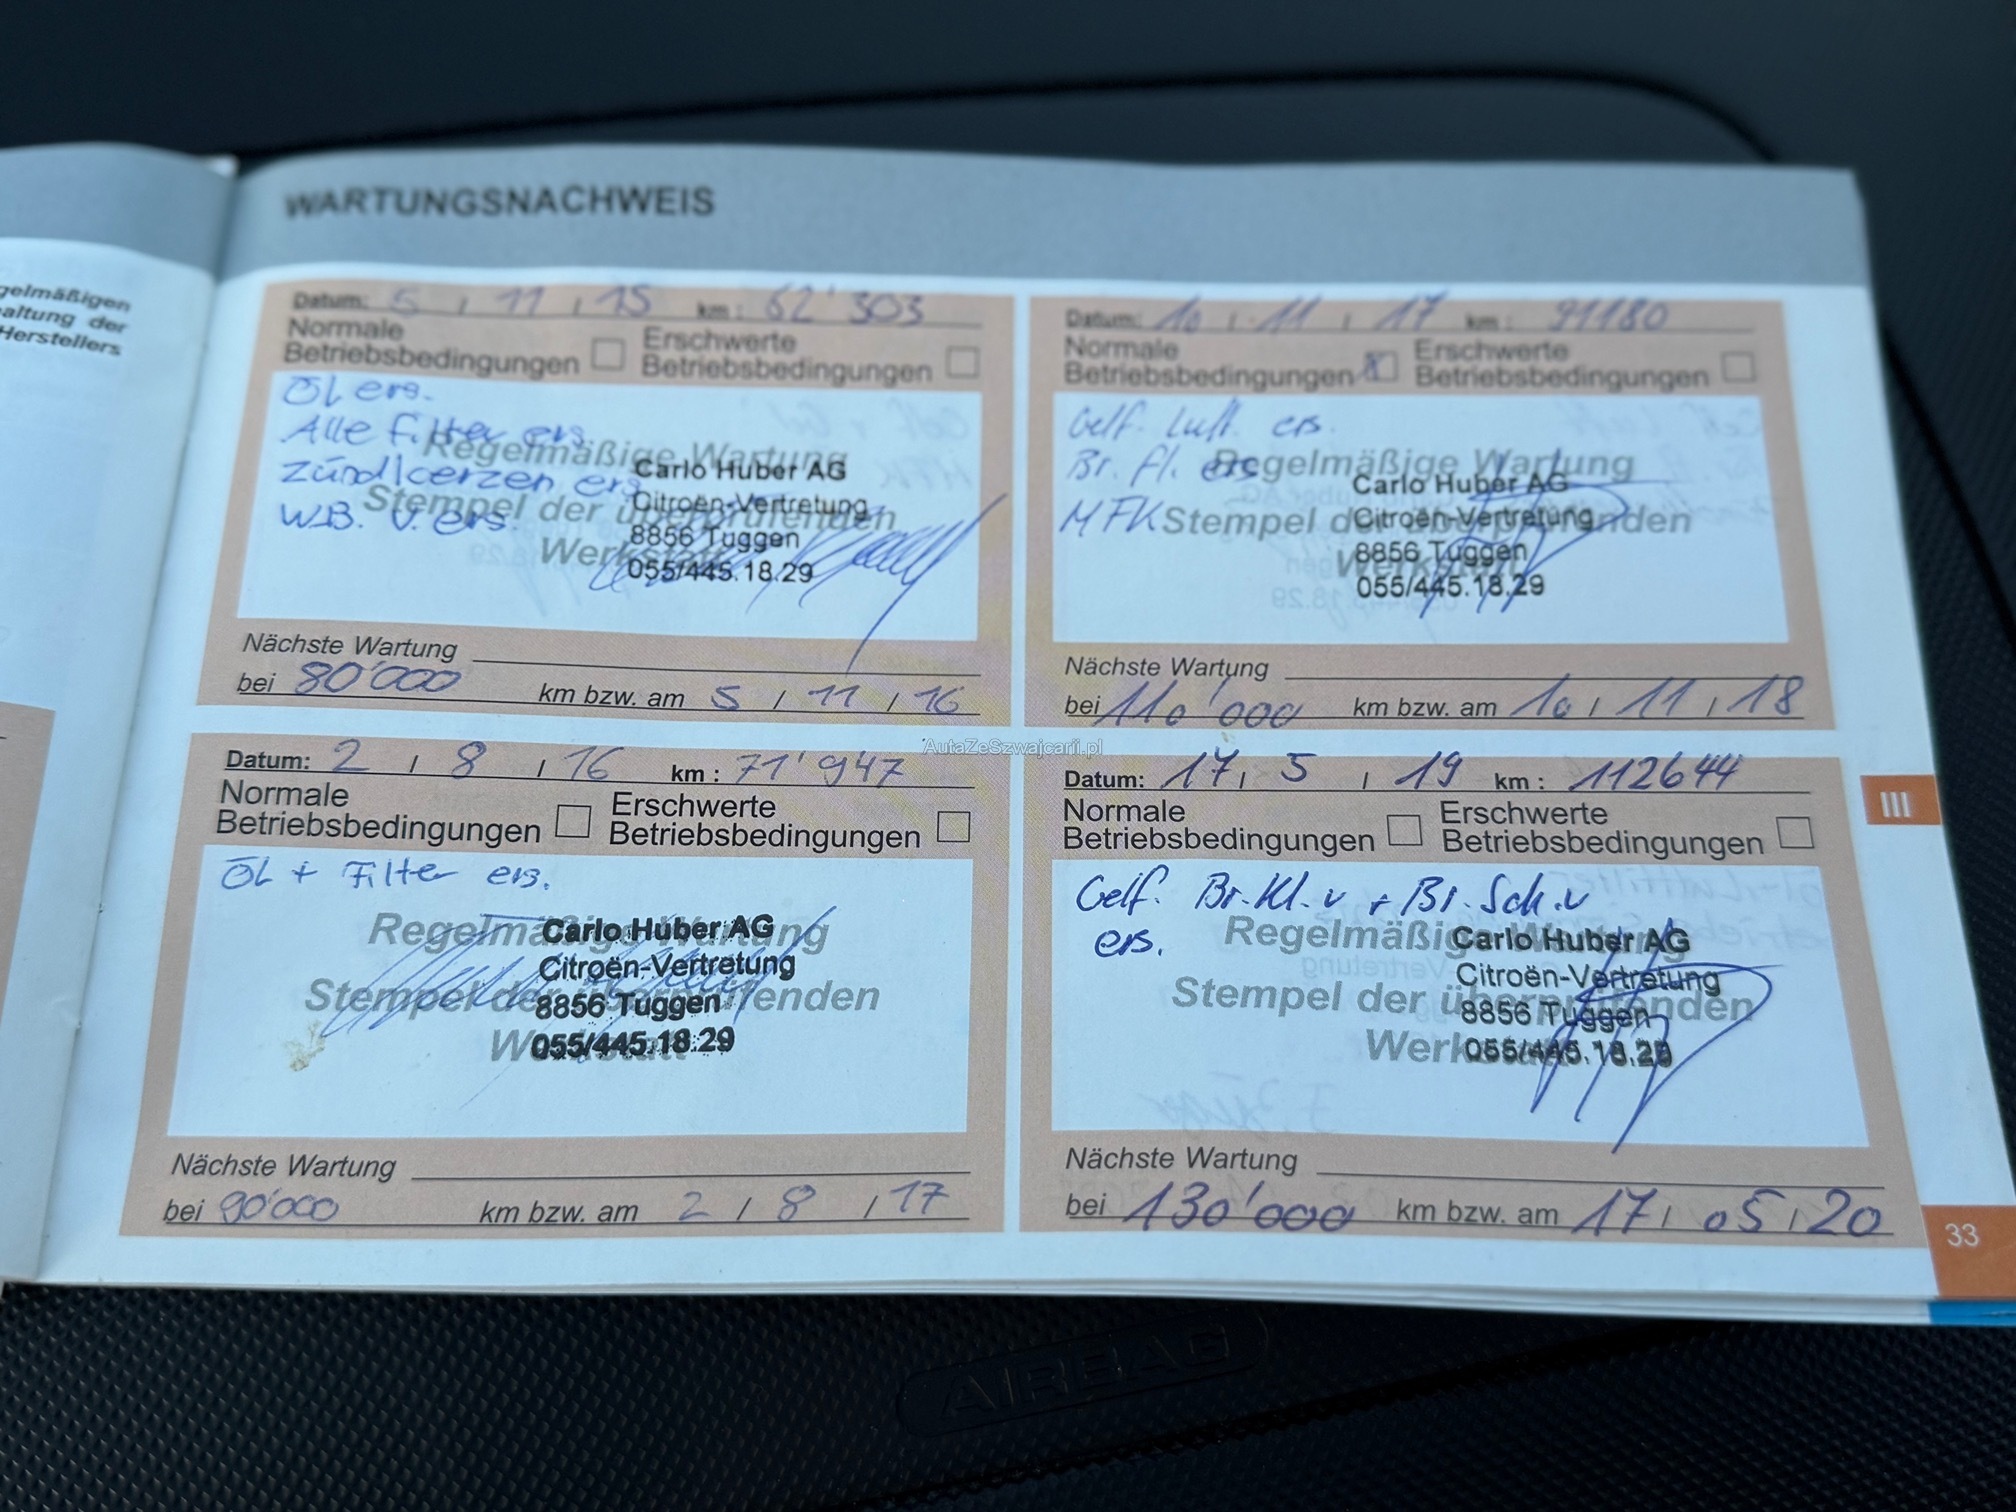 gelmäßigen
altung der
Herstellers
WARTUNGSNACHWEIS
Datum: 5 / 11 / 15 km : 62'303
Normale Betriebsbedingungen
Erschwerte Betriebsbedingungen
ÖL ers.
Alle Filter ers.
Zündkerzen ers.
W.B. V. ers.
Regelmäßige Wartung
Stempel der überprüfenden
Werkstatt
Carlo Huber AG
Citroën-Vertretung
8856 Tuggen
055/445.18.29
Nächste Wartung
bei 80'000 km bzw. am 5 / 11 / 16
Datum: 2 / 8 / 16 km : 71'947
Normale Betriebsbedingungen
Erschwerte Betriebsbedingungen
ÖL + Filter ers.
Regelmäßige Wartung
Stempel der überprüfenden
Werkstatt
Carlo Huber AG
Citroën-Vertretung
8856 Tuggen
055/445.18.29
Nächste Wartung
bei 90'000 km bzw. am 2 / 8 / 17
Datum: 10 / 11 / 17 km : 91180
Normale Betriebsbedingungen
Erschwerte Betriebsbedingungen
Oelf. Luft. ers.
Br. fl. ers
MFK
Regelmäßige Wartung
Stempel der überprüfenden
Werkstatt
Carlo Huber AG
Citroën-Vertretung
8856 Tuggen
055/445.18.29
Nächste Wartung
bei 110'000 km bzw. am 10 / 11 / 18
Datum: 17 / 5 / 19 km : 112644
Normale Betriebsbedingungen
Erschwerte Betriebsbedingungen
Oelf. Br. Kl. v + Br. Sch. v
ers.
Regelmäßige Wartung
Stempel der überprüfenden
Werkstatt
Carlo Huber AG
Citroën-Vertretung
8856 Tuggen
055/445.18.29
Nächste Wartung
bei 130'000 km bzw. am 17 / 05 / 20
III
33
AutaZeSzwajcarii.pl
AIRBAG